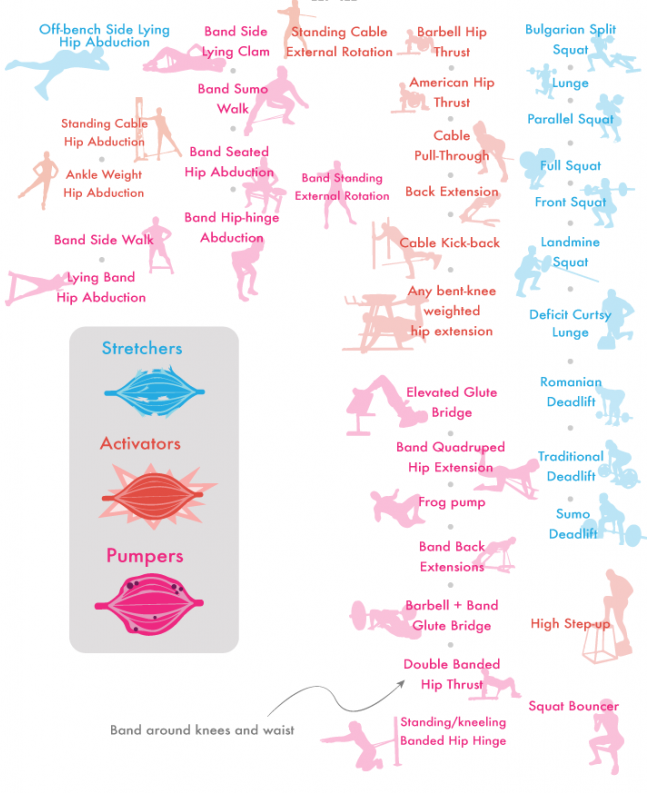 Off-bench Side Lying
Hip Abduction
Standing Cable
Hip Abduction
Ankle Weight
Hip Abduction
Band Side Walk
Lying Band
Hip Abduction
Band Side
Lying Clam
Band Sumo
Walk
Band Seated
Hip Abduction
Band Hip-hinge
Abduction
Standing Cable
External Rotation
Band Standing
External Rotation
Barbell Hip
Thrust
American Hip
Thrust
Cable
Pull-Through
Back Extension
Cable Kick-back
Any bent-knee
weighted
hip extension
Elevated Glute
Bridge
Band Quadruped
Hip Extension
Frog pump
Band Back
Extensions
Barbell + Band
Glute Bridge
Double Banded
Hip Thrust
Standing/kneeling
Banded Hip Hinge
Bulgarian Split
Squat
Lunge
Parallel Squat
Full Squat
Front Squat
Landmine
Squat
Deficit Curtsy
Lunge
Romanian
Deadlift
Traditional
Deadlift
Sumo
Deadlift
High Step-up
Squat Bouncer
Stretchers
Activators
Pumpers
Band around knees and waist